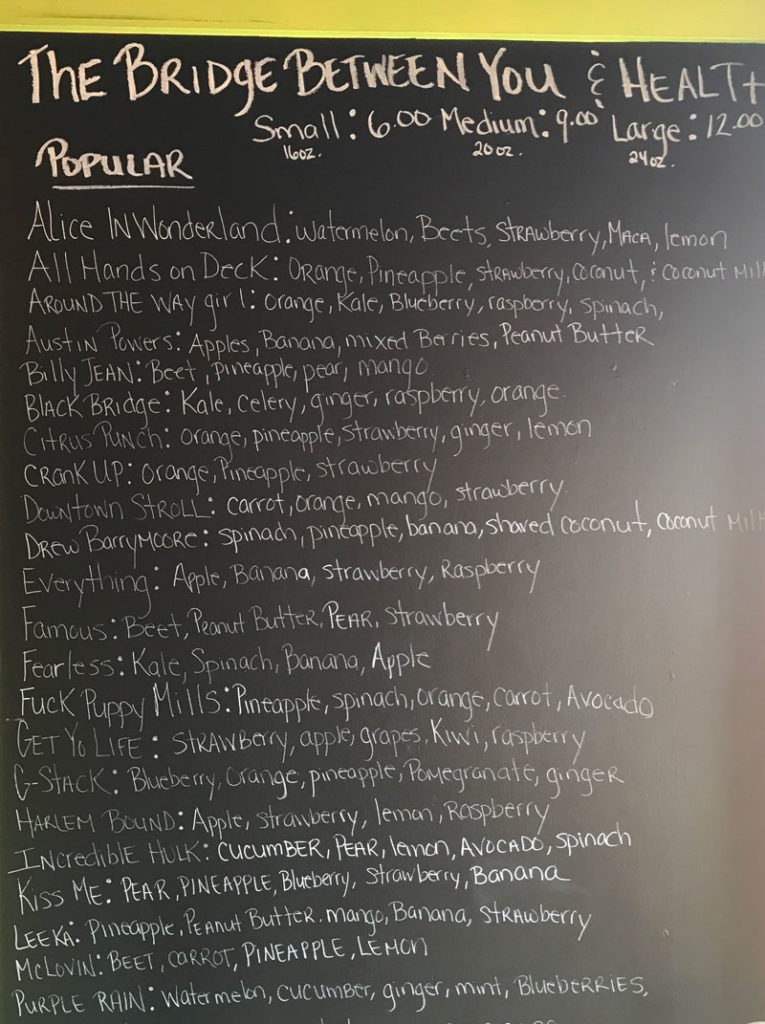 The Bridge Between You & Healt
Small: 6.00 Medium: 9.00 Large: 12.00
16oz. 20oz. 24oz.
Popular
Alice In Wonderland: watermelon, Beets, Strawberry, Maca, lemon
All Hands on Deck: Orange, Pineapple, strawberry, coconut, & coconut Mil
Around The Way girl: orange, Kale, Blueberry, raspberry, spinach,
Austin Powers: Apples, Banana, mixed Berries, Peanut Butter
Billy Jean: Beet, pineapple, pear, mango
Black Bridge: Kale, celery, ginger, raspberry, orange
Citrus Punch: orange, pineapple, strawberry, ginger, lemon
Crank Up: orange, Pineapple, strawberry
Downtown Stroll: carrot, orange, mango, strawberry
Drew Barrymoore: spinach, pineapple, banana, shaved coconut, coconut Mil
Everything: Apple, Banana, strawberry, Raspberry
Famous: Beet, Peanut Butter, Pear, strawberry
Fearless: Kale, Spinach, Banana, Apple
Fuck Puppy Mills: Pineapple, spinach, orange, carrot, Avocado
Get Yo Life: Strawberry, apple, grapes, Kiwi, raspberry
G-Stack: Blueberry, Orange, pineapple, Pomegranate, ginger
Harlem Bound: Apple, strawberry, lemon, Raspberry
Incredible Hulk: Cucumber, Pear, lemon, Avocado, spinach
Kiss Me: Pear, Pineapple, Blueberry, Strawberry, Banana
Leeka: Pineapple, Peanut Butter. mango, Banana, Strawberry
McLovin: Beet, carrot, Pineapple, Lemon
Purple Rain: watermelon, cucumber, ginger, mint, Blueberries,